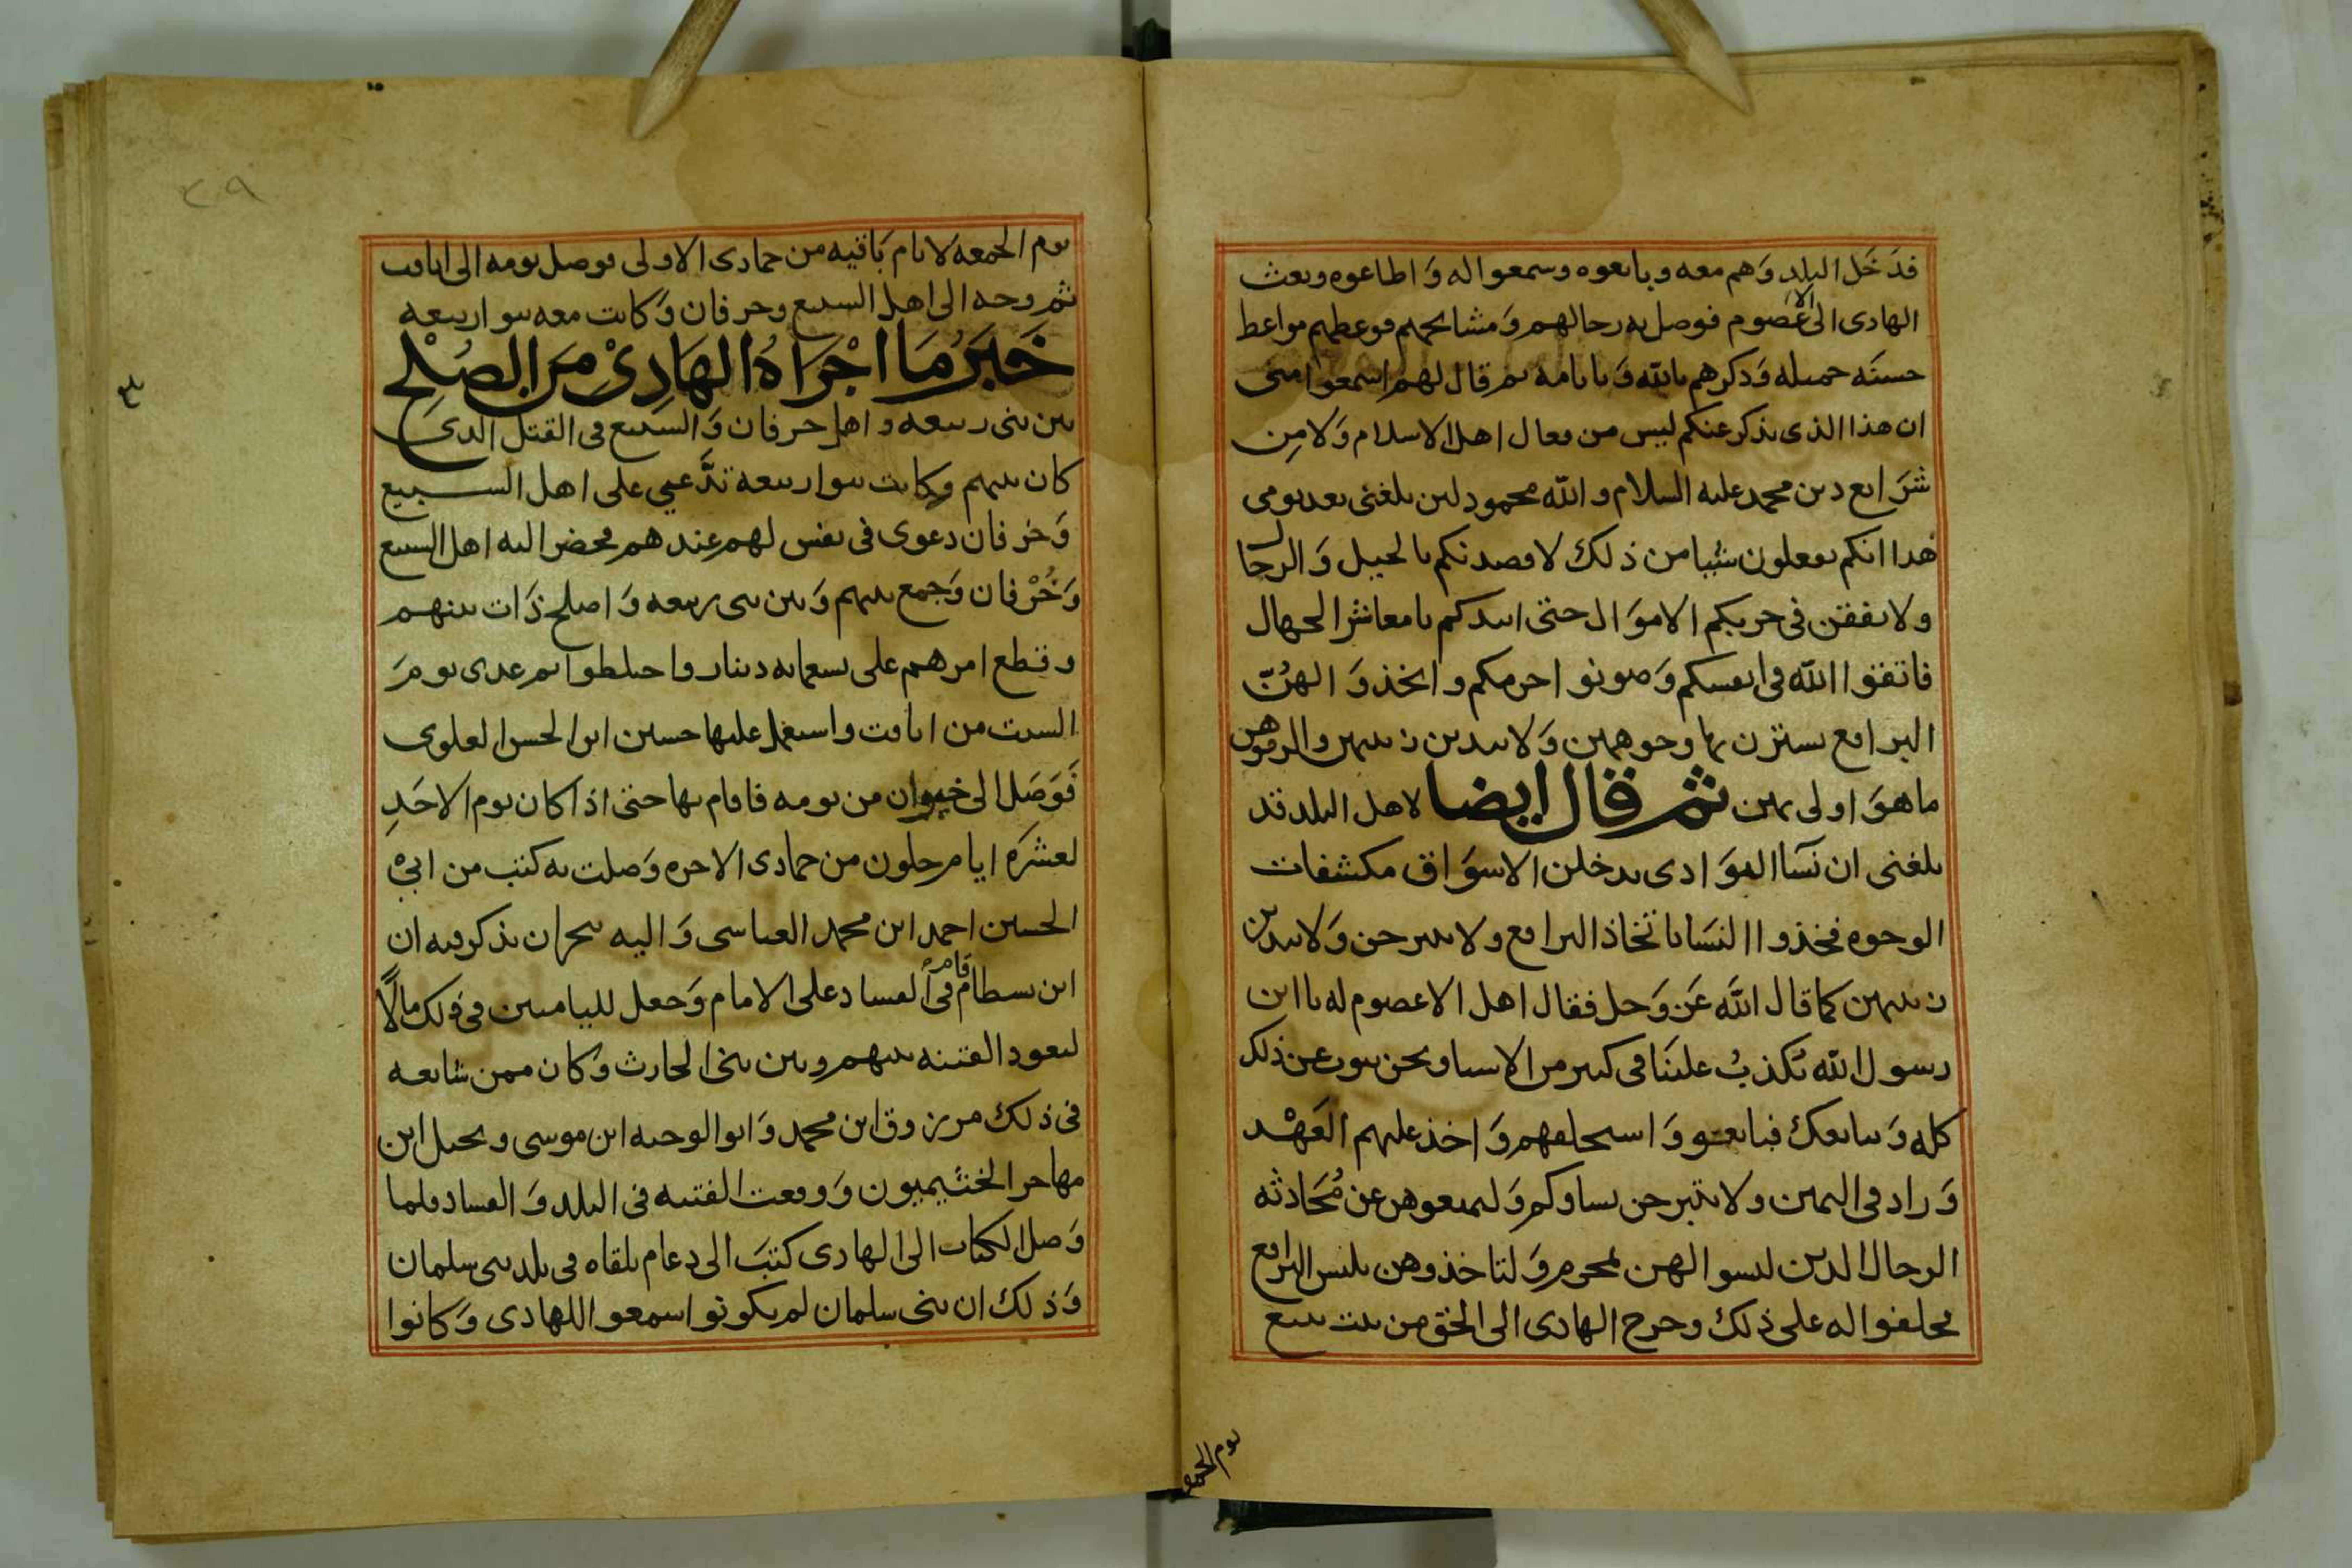 فدخل البلد وهم معه وبايعوه وسمعوا له واطاعوه وبعث
الهادى الى الاعصوم فوصل به رجالهم ومشائخهم فوعظهم مواعظ
حسنه جميله وذكرهم بالله وبايامه ثم قال لهم اسمعوا منى
ان هذا الذى يذكر عنكم ليس من فعال اهل الاسلام ولا من
شرايع دين محمد عليه السلام والله محمود لين بلغنى بعد يومى
هذا انكم تفعلون شيا من ذلك لاقصدنكم بالخيل والرجال
ولانفقن فى حربكم الاموال حتى ابيدكم يا معاشر الجهال
فاتقوا الله فى انفسكم وصونوا حرمكم واتخذوا لهن
البراقع يستترن بها وجوههن ولا يبدين زينتهن والزموهن
ما هو اولى بهن ثم قال ايضا لاهل البلد قد
بلغنى ان نسا البوادى يدخلن الاسواق مكشفات
الوجوه فخذوا النسا باتخاذ البراقع ولا يتبرجن ولا يبدين
زينتهن كما قال الله عز وجل فقال اهل الاعصوم له يا ابن
رسول الله يكذب علينا فى كثير من الاشيا ونحن نتوب عن ذلك
كله ونبايعك فبايعو واستحلفهم واخذ عليهم العهد
وزاد فى اليمين ولا يتبرجن نساوكم ولتمنعوهن عن محادثه
الرجال الذين ليسوا لهن بمحرم ولتاخذوهن بلبس البراقع
فحلفوا له على ذلك وخرج الهادى الى الحق من بيت سبع
يوم الجمعه
٢٩
يوم الجمعه لايام باقيه من جمادى الاولى فوصل يومه الى اثافت
ثم وجه الى اهل السبيع وحرفان وكانت معه بنوا ربيعه
خبر ما اجراه الهادى من الصلح
بين بنى ربيعه واهل حرفان والسبيع فى القتل الذى
كان بينهم وكانت بنوا ربيعه تدعى على اهل السبيع
وخرفان دعوى فى نفس لهم عندهم فحضر اليه اهل السبيع
وخرفان وجمع بينهم وبين بنى ربيعه واصلح ذات بينهم
وقطع امرهم على تسعمايه دينار واختلطوا ثم غدى يوم
السبت من اثافت واستعمل عليها حسين ابن الحسن العلوى
فوصل الى خيوان من يومه فاقام بها حتى اذا كان يوم الاحد
لعشره ايام خلون من جمادى الاخره وصلت به كتب من ابى
الحسين احمد ابن محمد العباسى واليه نجران يذكر فيه ان
ابن بسطام قام فى الفساد على الامام وجعل لليامين فى ذلك مالا
لتعود الفتنه بينهم وبين بنى الحارث وكان ممن شايعه
فى ذلك مرزوق ابن محمد وابو الوجيه ابن موسى ونحيل ابن
مهاجر الخثيميون ووقعت الفتنه فى البلد والفساد فلما
وصل الكتاب الى الهادى كتب الى دعام يلقاه فى بلد بنى سلمان
وذلك ان بنى سلمان لم يكونوا سمعوا للهادى وكانوا